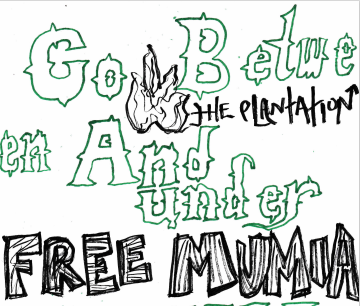 Go Betwe
THE PLANTATION
en And
under
FREE MUMIA